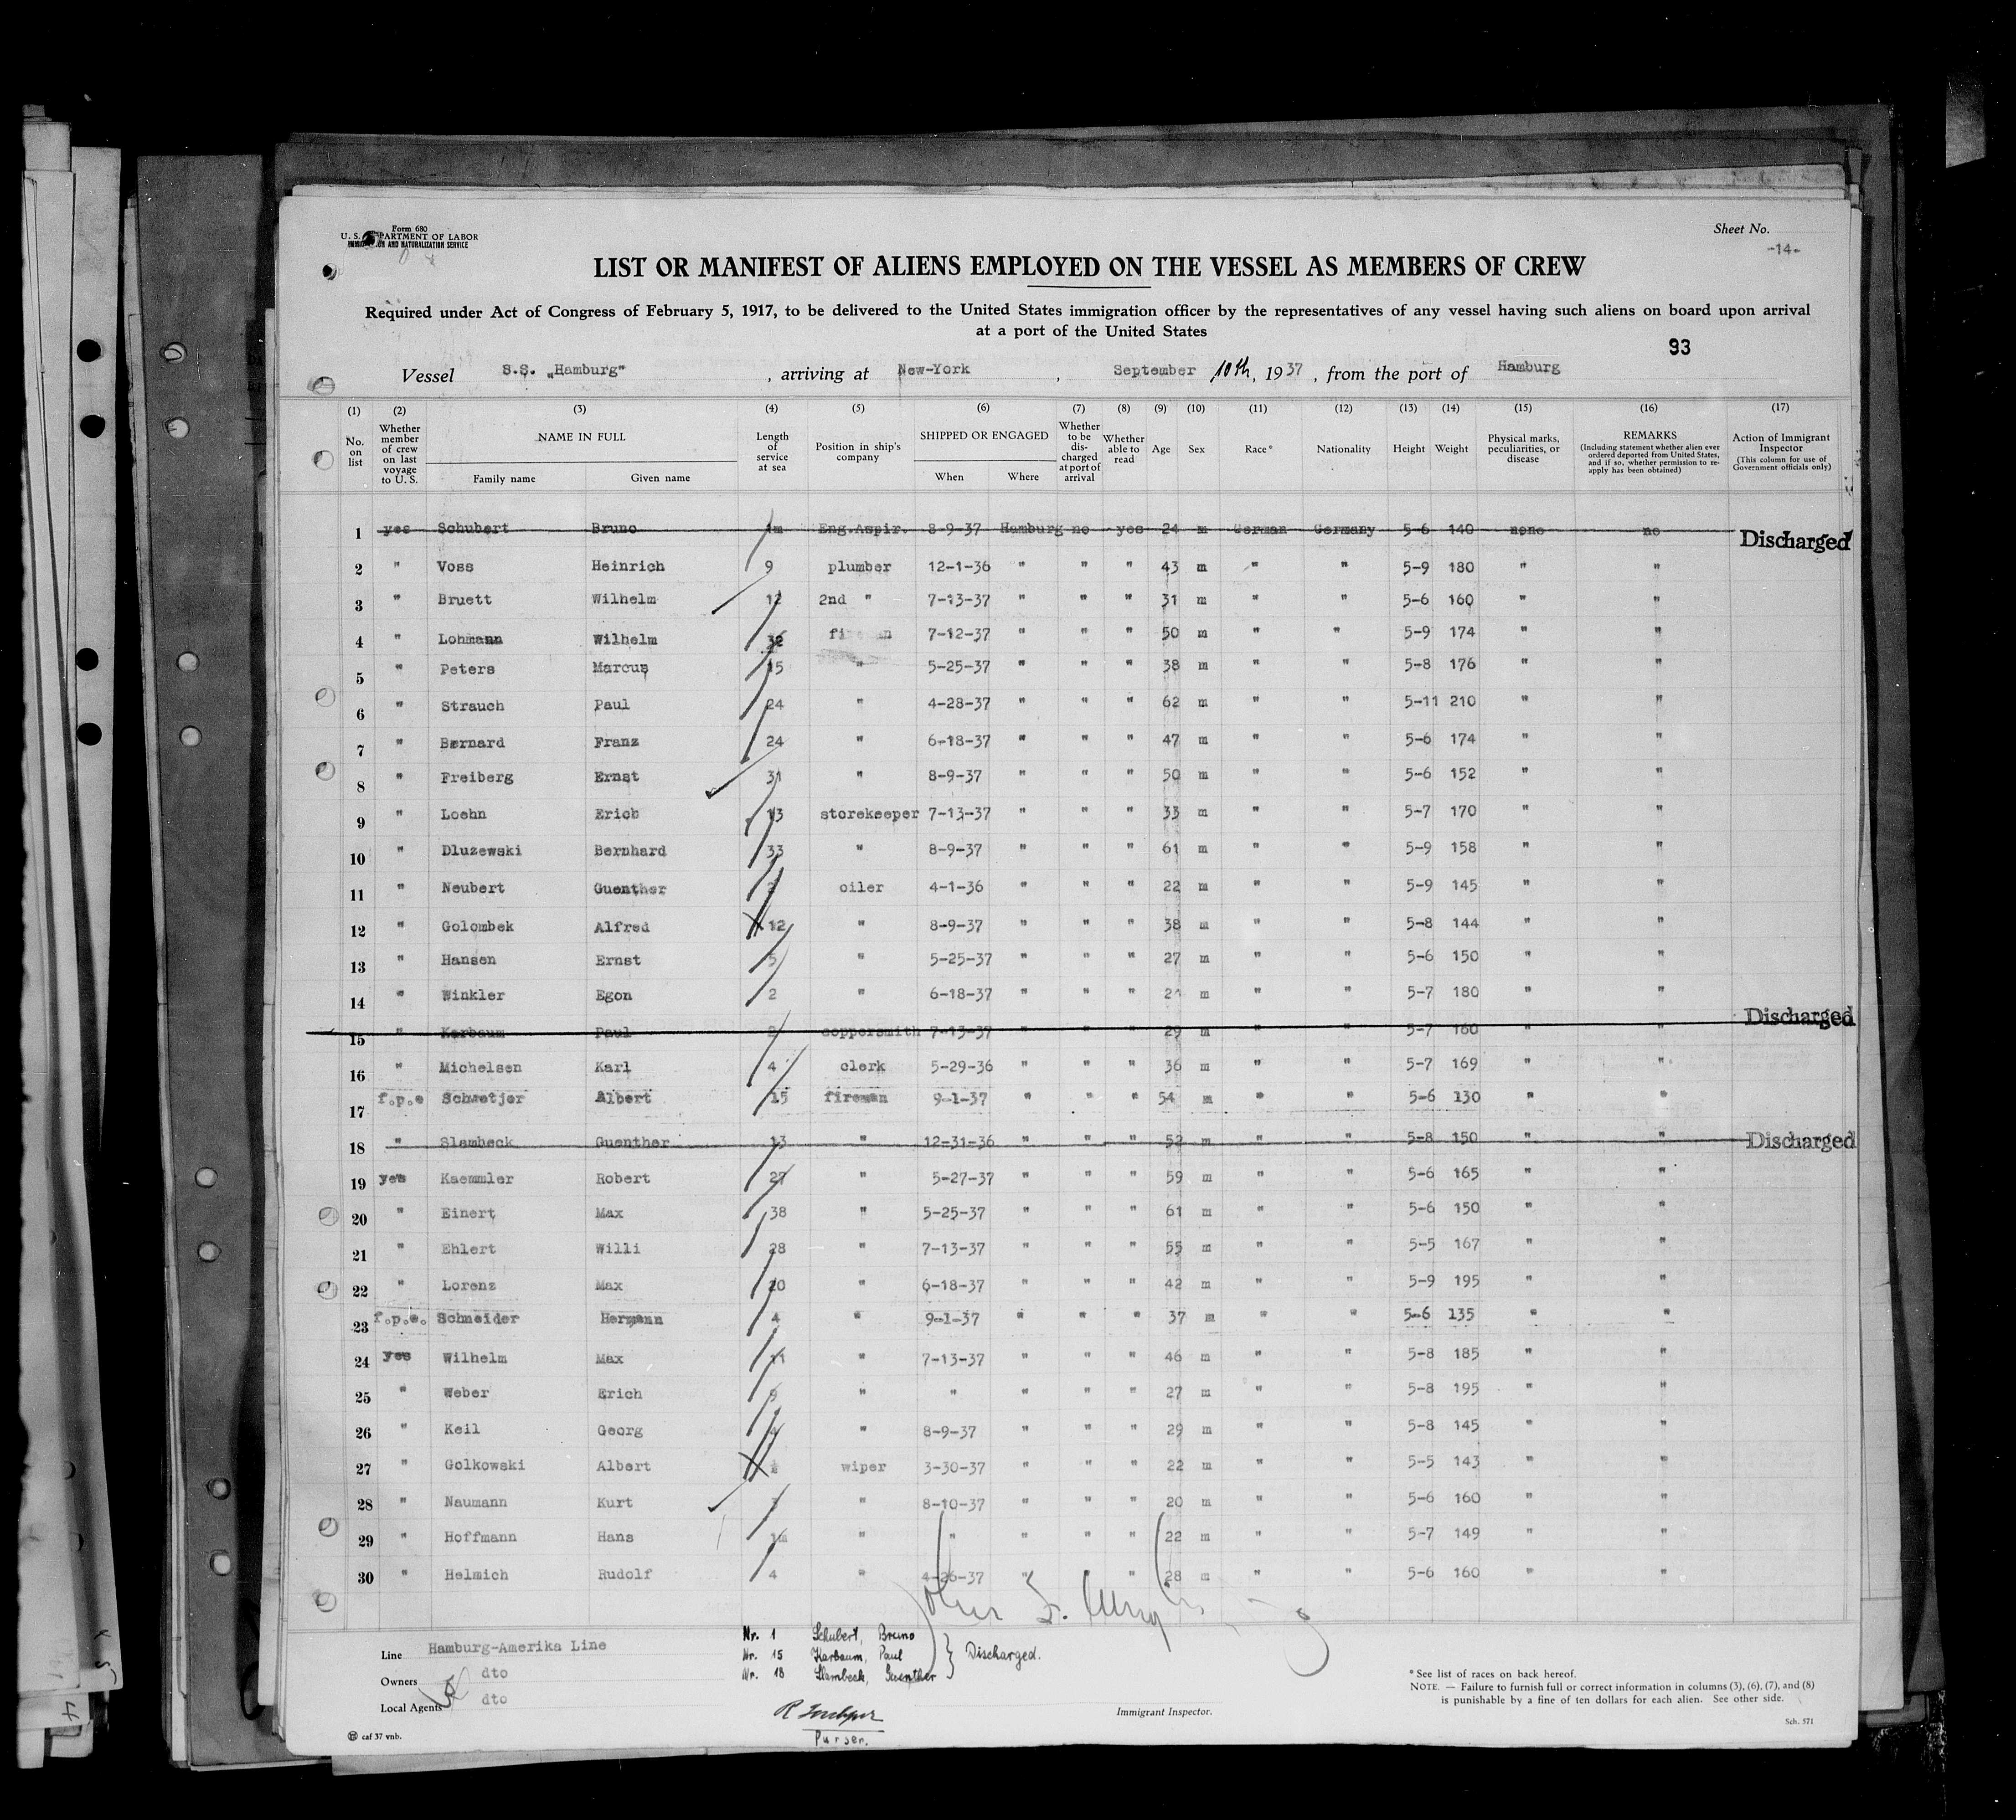 Form 680
U. S. DEPARTMENT OF LABOR
IMMIGRATION AND NATURALIZATION SERVICE
Sheet No.
-14-
LIST OR MANIFEST OF ALIENS EMPLOYED ON THE VESSEL AS MEMBERS OF CREW
Required under Act of Congress of February 5, 1917, to be delivered to the United States immigration officer by the representatives of any vessel having such aliens on board upon arrival
at a port of the United States
93
Vessel S.S. „Hamburg" , arriving at New-York , September 10th, 1937 , from the port of Hamburg
(1) (2) (3) (4) (5) (6) (7) (8) (9) (10) (11) (12) (13) (14) (15) (16) (17)
No. on list Whether member of crew on last voyage to U. S. NAME IN FULL Family name Given name Length of service at sea Position in ship's company SHIPPED OR ENGAGED When Where Whether to be discharged at port of arrival Whether able to read Age Sex Race* Nationality Height Weight Physical marks, peculiarities, or disease REMARKS (Including statement whether alien ever ordered deported from United States, and if so, whether permission to reapply has been obtained) Action of Immigrant Inspector (This column for use of Government officials only)
1 yes Schubert Bruno 1m Eng.Aspir. 8-9-37 Hamburg no yes 24 m German Germany 5-6 140 none no Discharged
2 " Voss Heinrich 9 plumber 12-1-36 " " " 43 m " " 5-9 180 " "
3 " Bruett Wilhelm 12 2nd " 7-13-37 " " " 31 m " " 5-6 160 " "
4 " Lohmann Wilhelm 32 fireman 7-12-37 " " " 50 m " " 5-9 174 " "
5 " Peters Marcus 15 " 5-25-37 " " " 38 m " " 5-8 176 " "
6 " Strauch Paul 24 " 4-28-37 " " " 62 m " " 5-11 210 " "
7 " Bernard Franz 24 " 6-18-37 " " " 47 m " " 5-6 174 " "
8 " Freiberg Ernst 31 " 8-9-37 " " " 50 m " " 5-6 152 " "
9 " Loehn Erich 13 storekeeper 7-13-37 " " " 33 m " " 5-7 170 " "
10 " Dluzewski Bernhard 33 " 8-9-37 " " " 61 m " " 5-9 158 " "
11 " Neubert Guenther oiler 4-1-36 " " " 22 m " " 5-9 145 " "
12 " Golombek Alfred 12 " 8-9-37 " " " 38 m " " 5-8 144 " "
13 " Hansen Ernst 5 " 5-25-37 " " " 27 m " " 5-6 150 " "
14 " Winkler Egon 2 " 6-18-37 " " " 21 m " " 5-7 180 " "
15 " Karbaum Paul coppersmith 7-13-37 " " " 29 m " " 5-7 160 " " Discharged
16 " Michelsen Karl 4 clerk 5-29-36 " " " 36 m " " 5-7 169 " "
17 f.p.e Schwetjer Albert 15 fireman 9-1-37 " " " 54 m " " 5-6 130 " "
18 " Slambeck Guenther 13 " 12-31-36 " " " 52 m " " 5-8 150 " " Discharged
19 yes Kaemmler Robert 27 " 5-27-37 " " " 59 m " " 5-6 165 " "
20 " Einert Max 38 " 5-25-37 " " " 61 m " " 5-6 150 " "
21 " Ehlert Willi 28 " 7-13-37 " " " 55 m " " 5-5 167 " "
22 " Lorenz Max 20 " 6-18-37 " " " 42 m " " 5-9 195 " "
23 f.p.e. Schneider Hermann 4 " 9-1-37 " " " 37 m " " 5-6 135 " "
24 yes Wilhelm Max 11 " 7-13-37 " " " 46 m " " 5-8 185 " "
25 " Weber Erich 9 " " " " " 27 m " " 5-8 195 " "
26 " Keil Georg 4 " 8-9-37 " " " 29 m " " 5-8 145 " "
27 " Golkowski Albert wiper 3-30-37 " " " 22 m " " 5-5 143 " "
28 " Naumann Kurt 3 " 8-10-37 " " " 20 m " " 5-6 160 " "
29 " Hoffmann Hans 1m " " " " " 22 m " " 5-7 149 " "
30 " Helmich Rudolf 4 " 4-26-37 " " 28 m " " 5-6 160 " "
Line Hamburg-Amerika Line
Owners dto
Local Agents dto
Nr. 1 Schubert, Bruno
Nr. 15 Karbaum, Paul } Discharged.
Nr. 18 Slambeck, Guenther
Purser.
Immigrant Inspector.
* See list of races on back hereof.
NOTE. — Failure to furnish full or correct information in columns (3), (6), (7), and (8)
is punishable by a fine of ten dollars for each alien. See other side.
caf 37 vnb.
Sch. 571